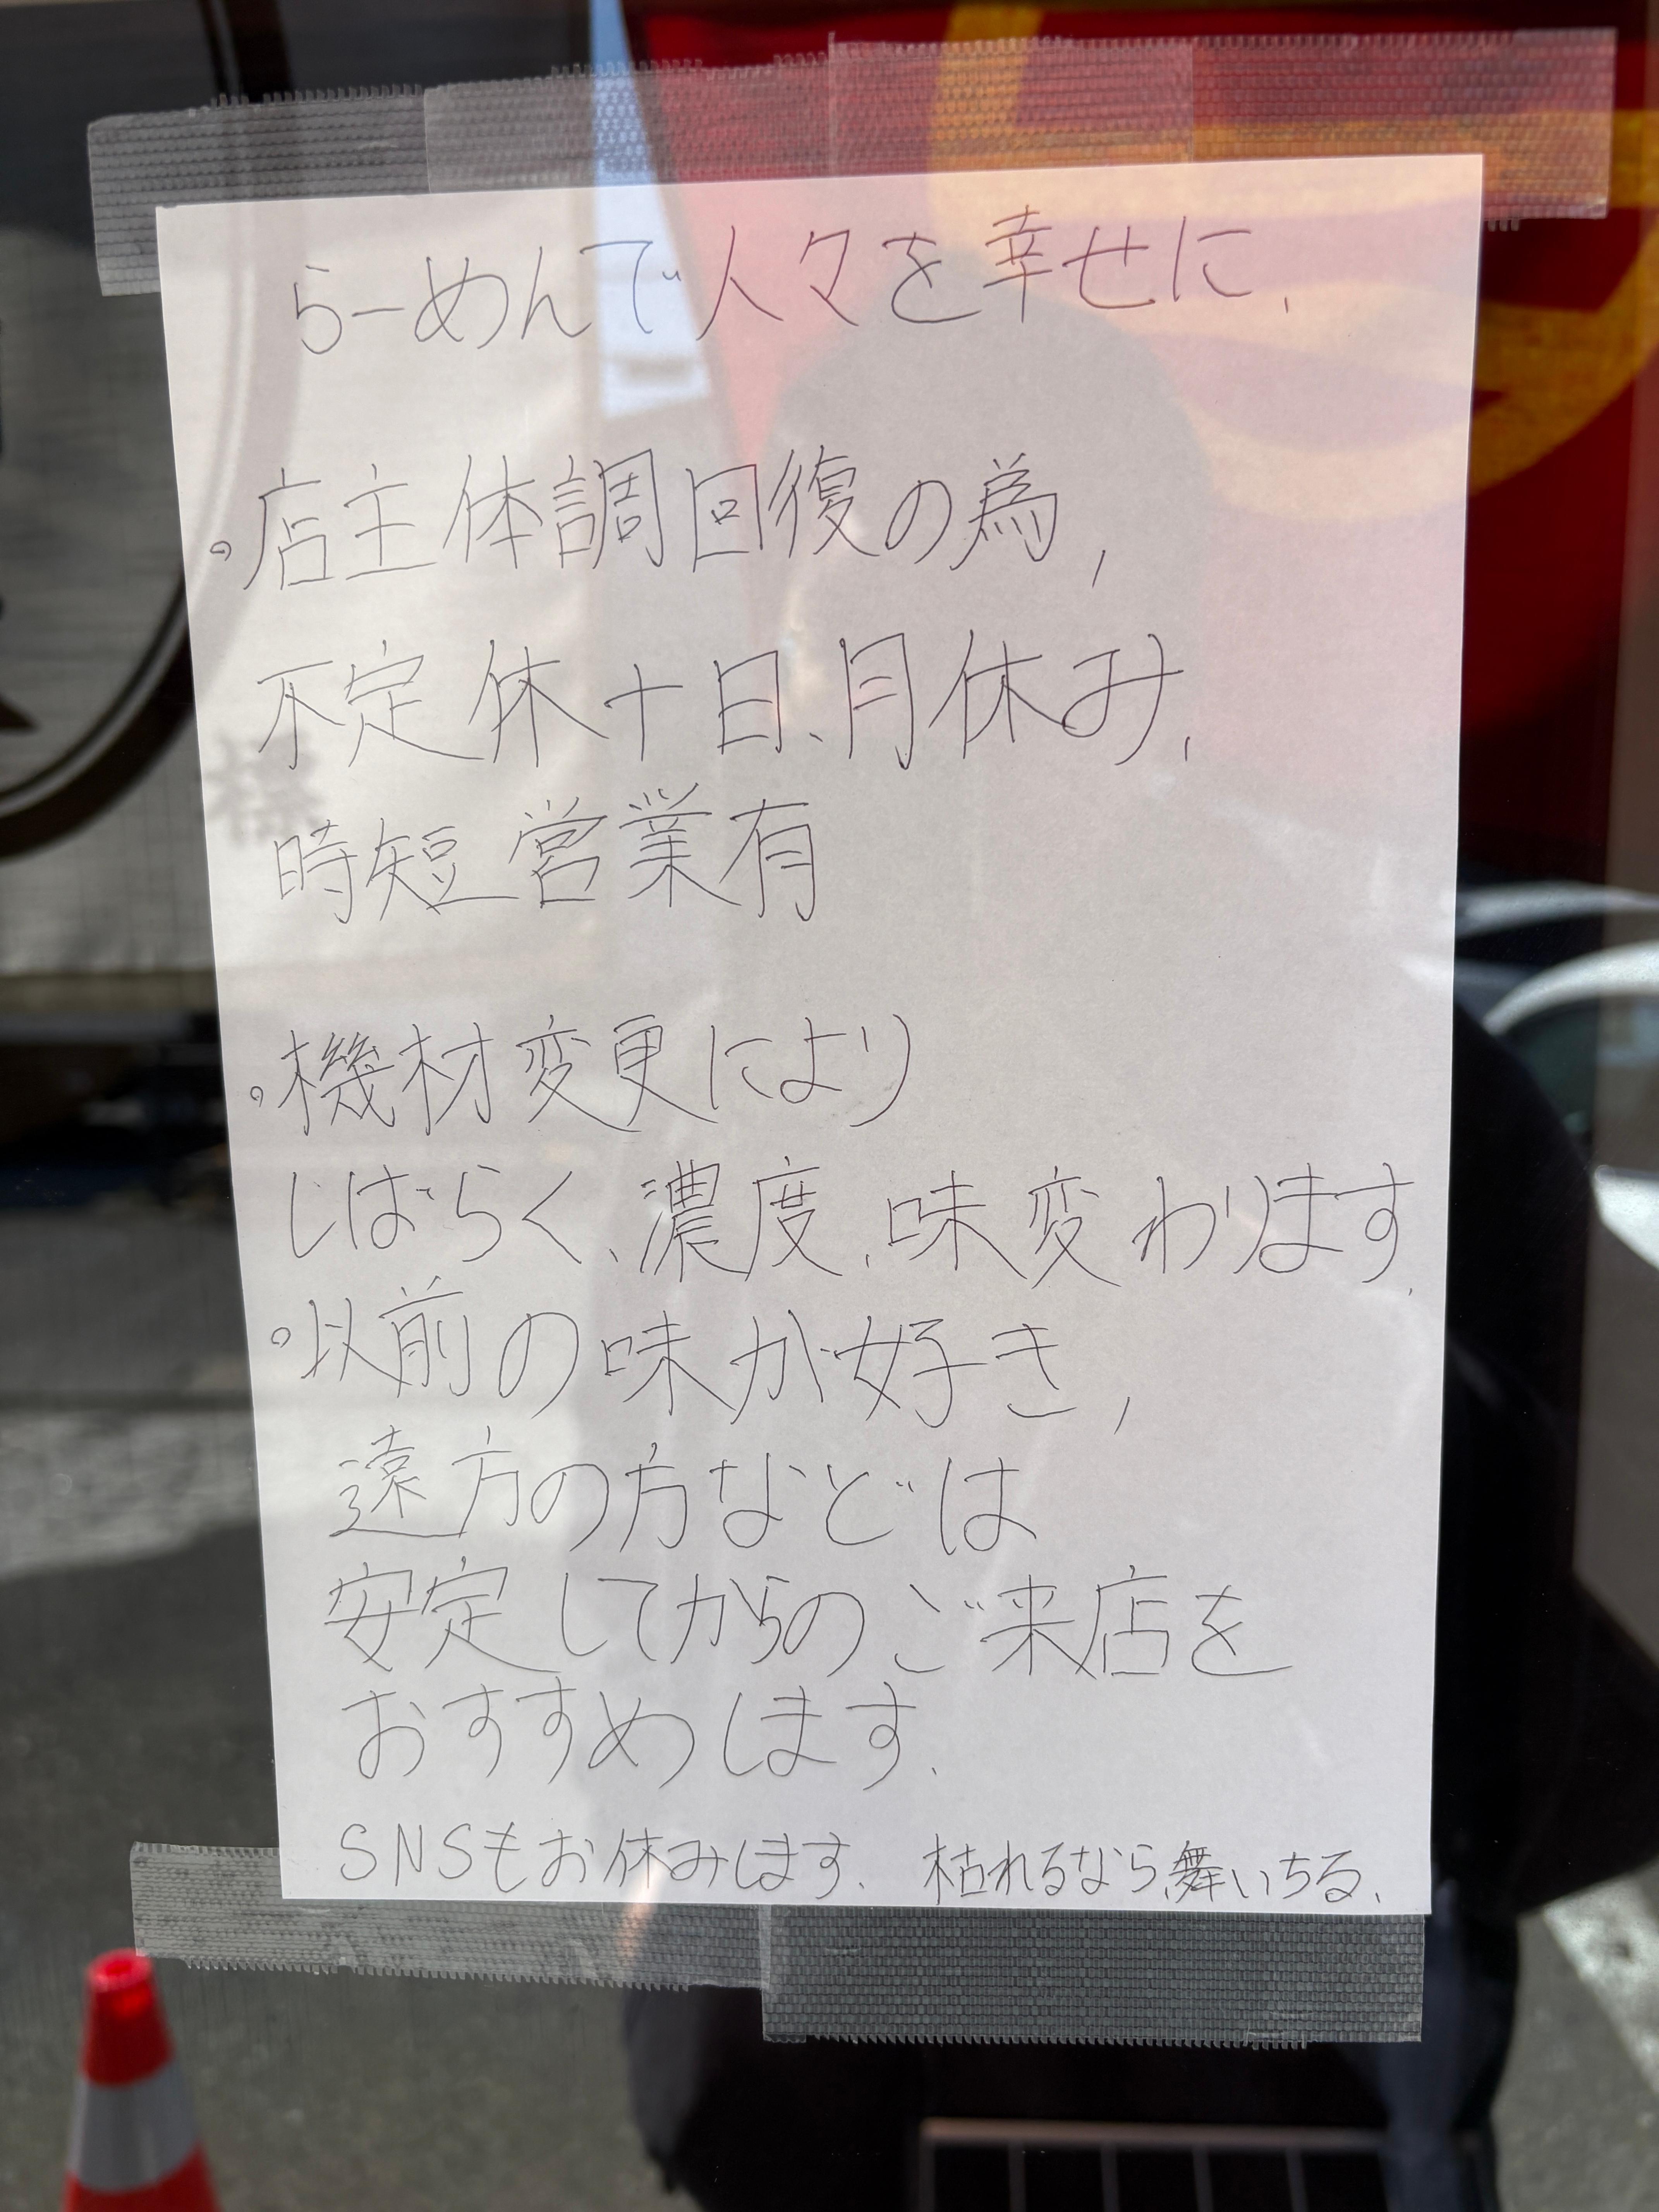 らーめんで人々を幸せに、
。店主体調回復の為,
不定休+日、月休み、
時短営業有
。機材変更により
しばらく、濃度、味変わります、
。以前の味が好き,
遠方の方などは
安定してからのご来店を
おすすめします、
SNSもお休みします、 枯れるなら舞いちる、
様